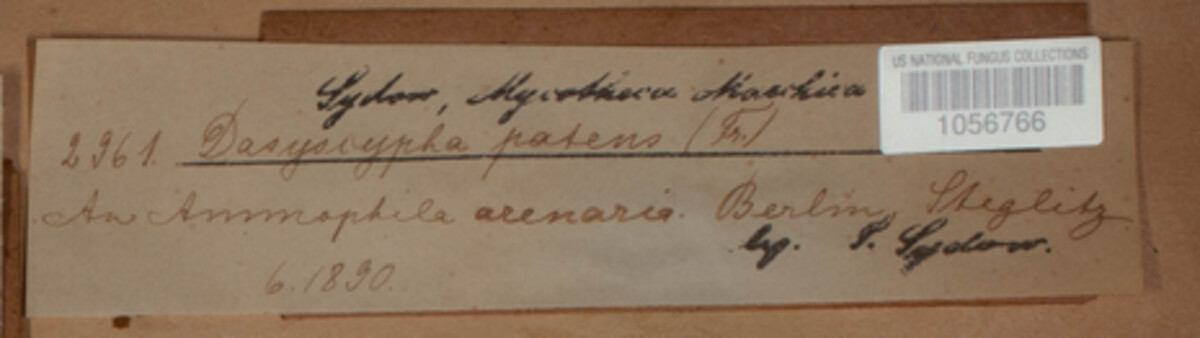 US NATIONAL FUNGUS COLLECTIONS
1056766
Sydow, Mycotheca Marchica
2961. Dasyscypha patens (Fr.)
An Ammophila arenaria. Berlin, Steglitz
leg. P. Sydow.
6.1890.